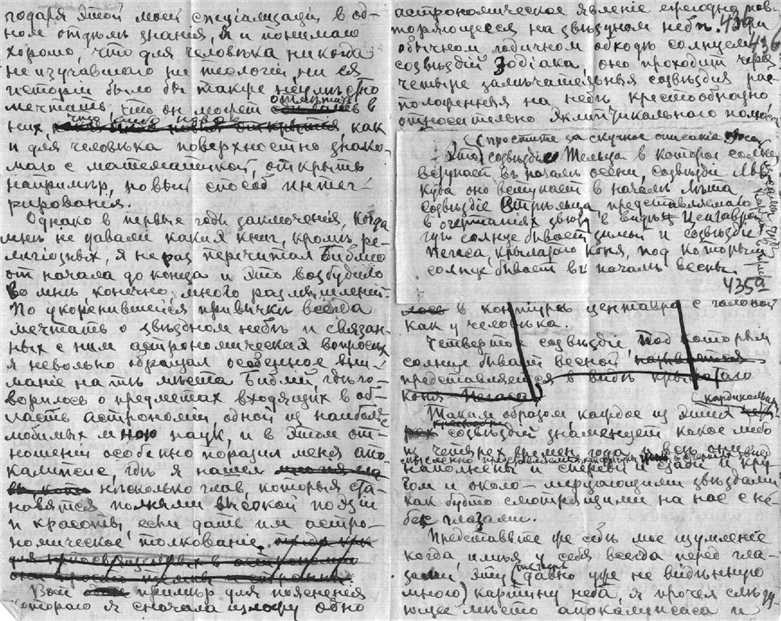 годаря этой моей спецiализацiи в од-
ном отделѣ знанiя, я и понимаю
хорошо, что для человѣка никогда
не изучавшаго ни теологiи, ни ея
исторiи было бы также неумѣстно
мечтать, что он может отыскать в
них что либо новое, как
и для человѣка поверхностно знако-
маго с математикой, открыть
напримѣр, новый способ интег-
рированiя.
Однако в первые годы заключенiя, когда
мнѣ не давали каких книг, кромѣ ре-
лигiозных, я не раз перечитал Библiю
от начала до конца и это возбудило
во мнѣ конечно много размышленiй.
По укоренившейся привычкѣ всегда
мечтать о звѣздном небѣ и связан-
ных с ним астрономических вопросах
я невольно обращал особенное вни-
манiе на тѣ мѣста Библiи, гдѣ го-
ворилось о предметах входящих в об-
ласть астрономiи одной из наиболѣе
любимых мною наук, и в этом от-
ношенiи особенно поразил меня апо-
калипсис, гдѣ я нашел
нѣсколько глав, которыя ста-
новятся полными высокой поэзiи
и красоты, если дать им астро-
номическое толкованiе.
Вот пример для пояснения
которого я сначала изложу одно
астрономическое явленiе ежегодно пов-
торяющееся на звѣздном небѣ. 434
436
обычном годичном обходѣ солнцем
созвѣздiй Зодiака, оно проходит через
четыре замѣчательныя созвѣздiя рас-
положенныя на небѣ крестообразно
относительно эклиптикальнаго полюса
(простите за скучное описанiе
Это созвѣздiе Тельца в которое солнце
вступает в началѣ осени, созвѣздiе Льва
куда оно вступает в началѣ лѣта
созвѣздiе Стрѣльца, представляемаго
в очертанiях звѣзд в видѣ Центавра
гдѣ солнце бывает зимой и созвѣздiе
Пегаса, крылатаго коня, под которым
солнце бывает в началѣ весны.
435
в контурѣ центавра с головой
как у человѣка.
Четвертое созвѣздiе под которым
солнце бывает весной называется
представляется в видѣ крылатаго
коня Пегаса
Таким образом каждое из этих кардинальных
созвѣздiй знаменует какое либо
из четырех времен года
наполнены и спереди и сзади и кру-
гом и около - мерцающими звѣздами
как будто смотрящими на нас с не-
бес глазами.
Представьте же себѣ мое изумленiе
когда, имея у себя всегда перед гла-
зами, эту давно уже не видѣнную
мною) картину неба, я прочел слѣду-
ющее мѣсто апокалипсиса и